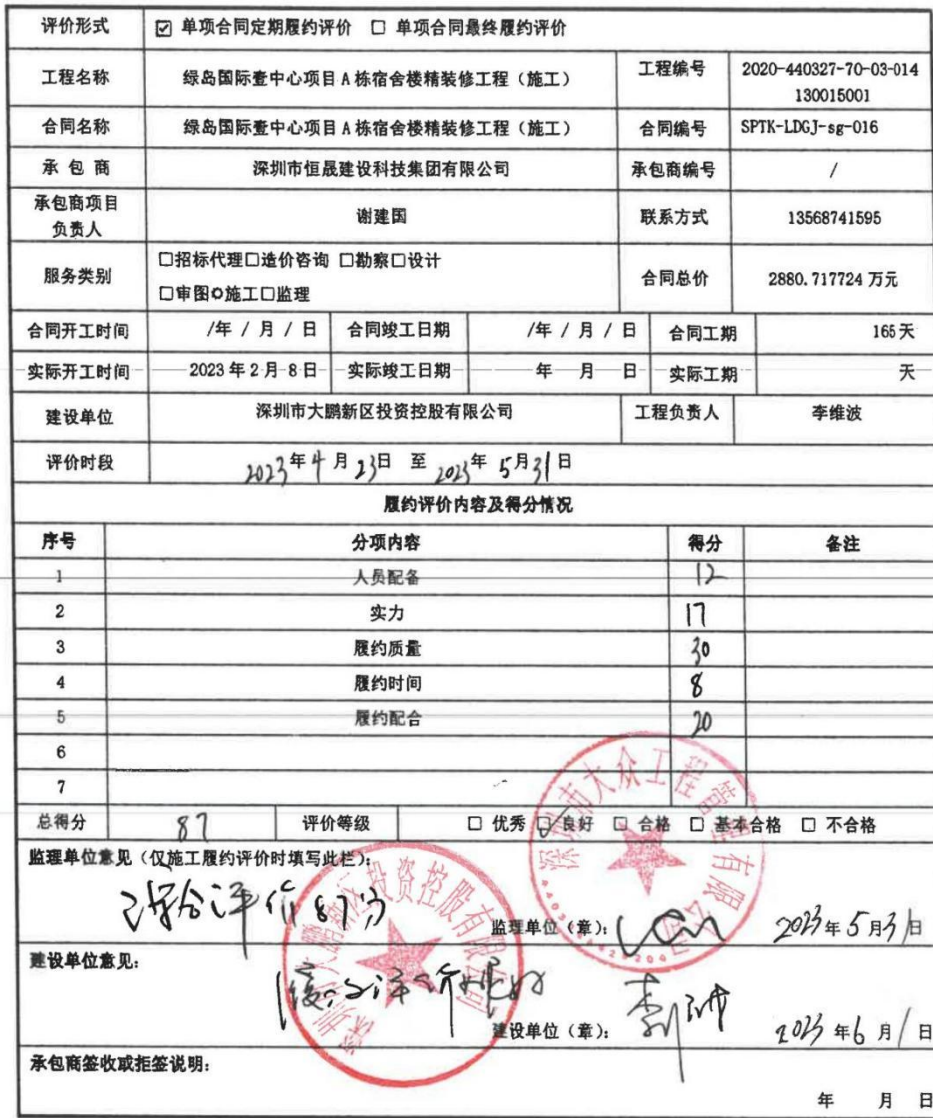 评价形式 ☑ 单项合同定期履约评价 □ 单项合同最终履约评价
工程名称 绿岛国际壹中心项目A栋宿舍楼精装修工程（施工） 工程编号 2020-440327-70-03-014
130015001
合同名称 绿岛国际壹中心项目A栋宿舍楼精装修工程（施工） 合同编号 SPTK-LDGJ-sg-016
承包商 深圳市恒晟建设科技集团有限公司 承包商编号 /
承包商项目
负责人 谢建国 联系方式 13568741595
服务类别 □招标代理□造价咨询 □勘察□设计
□审图✿施工□监理 合同总价 2880.717724 万元
合同开工时间 /年 / 月 / 日 合同竣工日期 /年 / 月 / 日 合同工期 165天
实际开工时间 2023年2月8日 实际竣工日期 年 月 日 实际工期 天
建设单位 深圳市大鹏新区投资控股有限公司 工程负责人 李维波
评价时段 2023年4月23日 至 2023年5月31日
履约评价内容及得分情况
序号 分项内容 得分 备注
1 人员配备 12
2 实力 17
3 履约质量 30
4 履约时间 8
5 履约配合 20
6
7
总得分 87 评价等级 □ 优秀 ☑ 良好 □ 合格 □ 基本合格 □ 不合格
监理单位意见（仅施工履约评价时填写此栏）：
综合评价87分
监理单位（章）： 2023年5月31日
建设单位意见：
履约评价良好
建设单位（章）： 2023年6月1日
承包商签收或拒签说明：
年 月 日
深圳市大众工程管理有限公司
深圳市大鹏新区投资控股有限公司